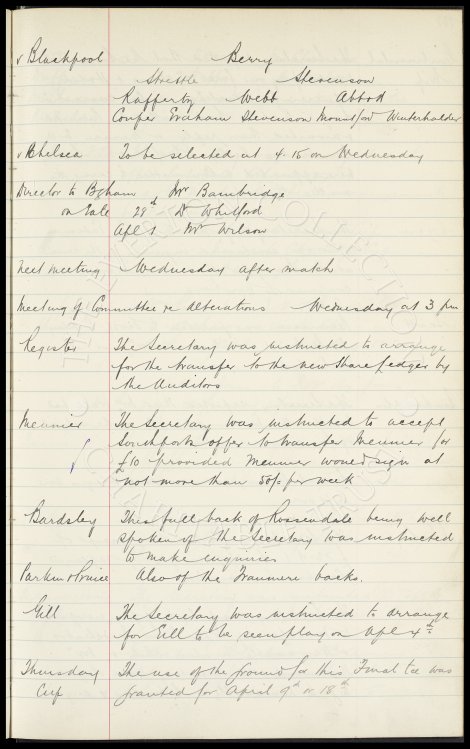 v Blackpool Berry
Strettle Stevenson
Rafferty Webb Abbott
Couper Graham Stevenson Mountford Winterhalder
v Chelsea To be selected at 4.15 on Wednesday
Director to B'ham Mr Bainbridge
on Gate 28th Dr Whitford
Apl 1 Mr Wilson
Next meeting Wednesday after match
Meeting of Committee re Alterations Wednesday at 3 pm
Register The Secretary was instructed to arrange
for the transfer to the new Share Ledger by
the Auditors
Meunier The Secretary was instructed to accept
Southports offer to transfer Meunier for
£10 provided Meunier would sign at
not more than 50/- per week
Bardsley This full back of Rossendale being well
spoken of the Secretary was instructed
to make enquiries
Parkin & Prince Also of the Tranmere backs.
Gill The Secretary was instructed to arrange
for Gill to be seen play on Apl 4th
Thursday The use of the ground for this Final tie was
Cup granted for April 9th or 18th